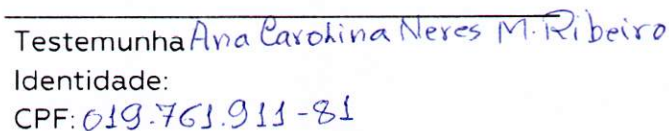 Testemunha Ana Carolina Neres M. Ribeiro
Identidade:
CPF: 019.761.911-81